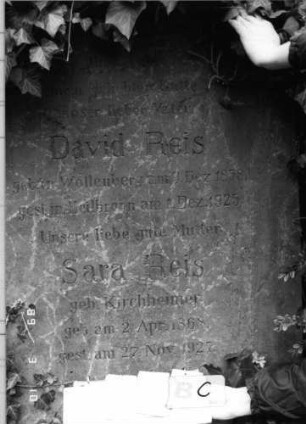 unser lieber Vater
David Reis
geb. in Wollenberg am 1. Dez.
gest. in Heilbronn am Dez. 1925
Unsere liebe gute Mutter
Sara Reis
geb. Kirchheimer
geb. am 2. Apr.
gest. am 27. Nov. 1927
C